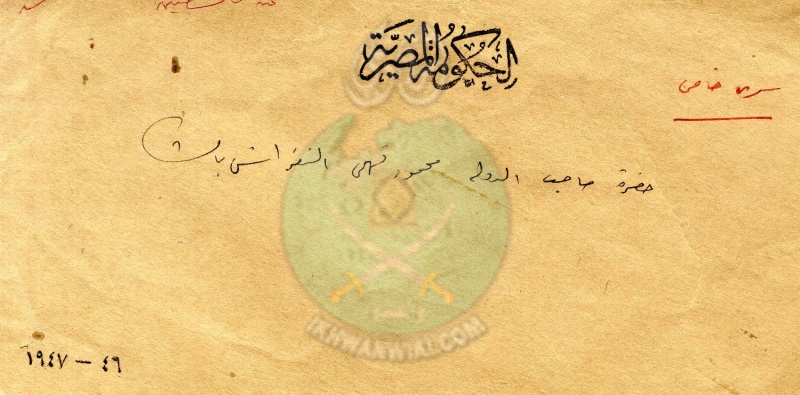 الحكومة المصرية
سري خاص
حضرة صاحب الدولة محمود فهمي النقراشي باشا
وأعدوا
IKHWANWIKI.COM
١٩٤٧ — ٤٦